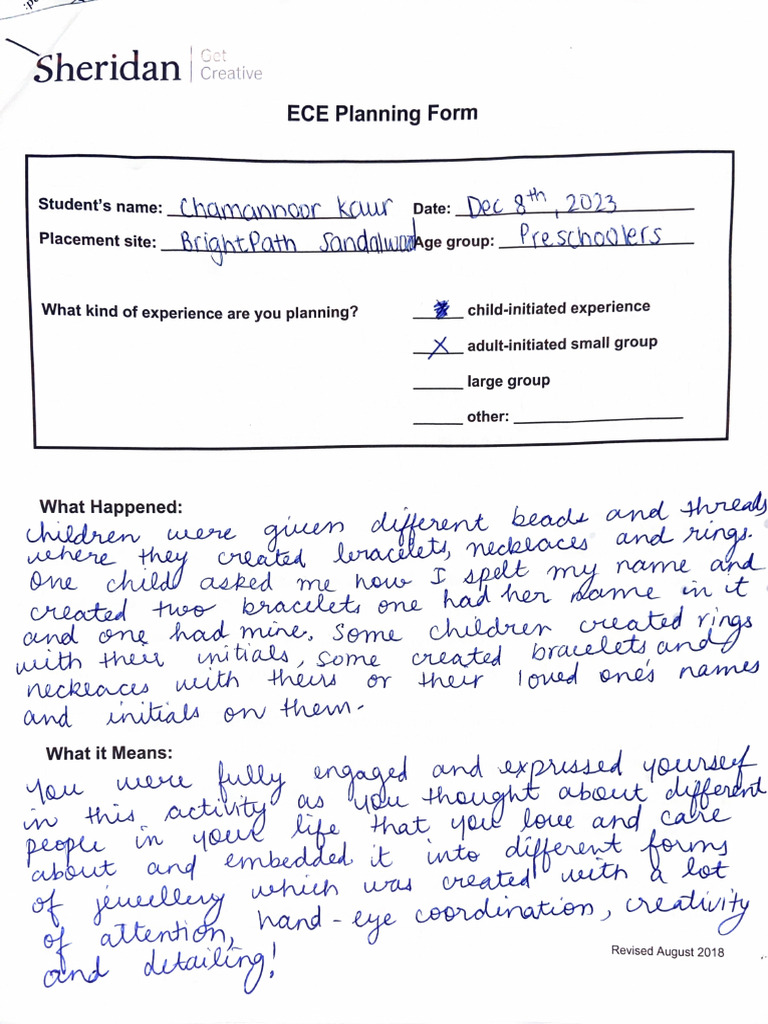 Sheridan | Get Creative
ECE Planning Form
Student's name: Chamannoor Kaur Date: Dec 8th, 2023
Placement site: BrightPath Sandalwood Age group: Preschoolers
What kind of experience are you planning? child-initiated experience
X adult-initiated small group
large group
other:
What Happened:
Children were given different beads and threads
where they created bracelets, necklaces and rings.
One child asked me how I spelt my name and
created two bracelets one had her name in it
and one had mine. Some children created rings
with their initials, some created bracelets and
necklaces with theirs or their loved one's names
and initials on them.
What it Means:
You were fully engaged and expressed yourself
in this activity as you thought about different
people in your life that you love and care
about and embedded it into different forms
of jewellery which was created with a lot
of attention, hand-eye coordination, creativity
and detailing!
Revised August 2018